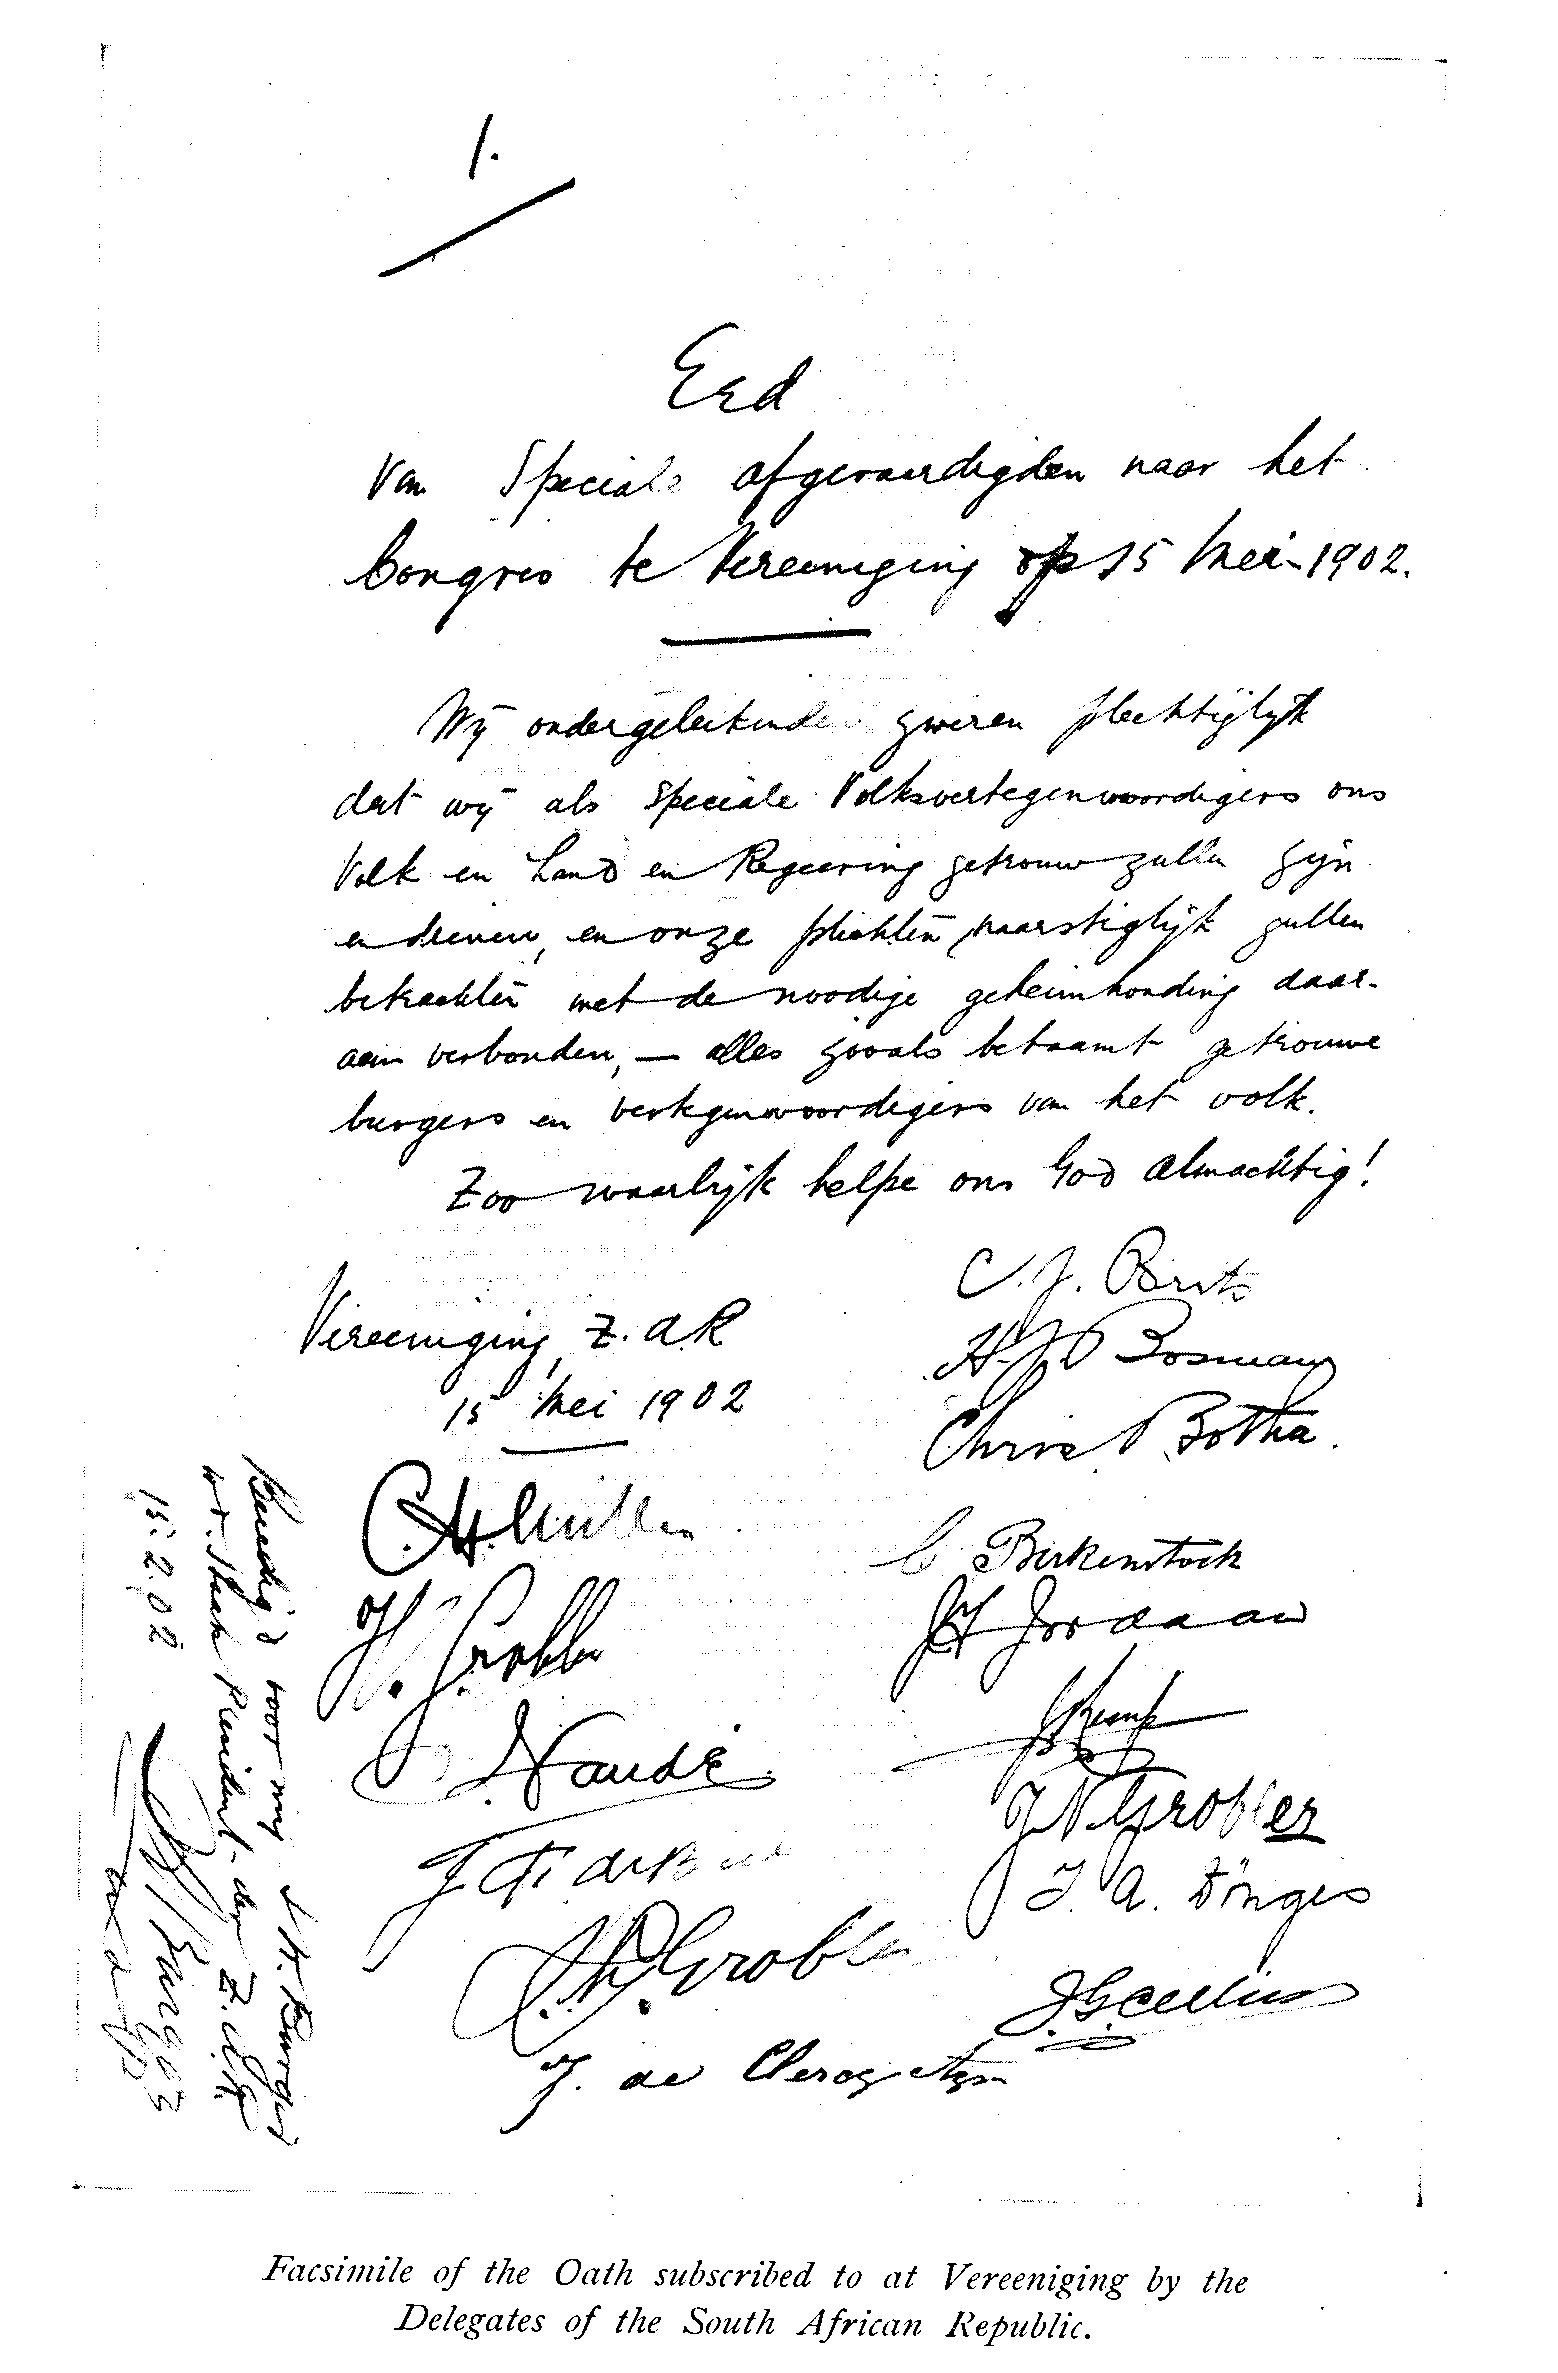 1.
Eed
Van Speciale afgevaardigden naar het
Congres te Vereeniging op 15 Mei 1902.
Wij ondergeteekenden zweren plechtiglijk
dat wij als speciale Volksvertegenwoordigers ons
Volk en Land en Regeering getrouw zullen zijn
en dienen, en onze plichten naarstiglijk zullen
betrachten met de noodige geheimhouding daar-
aan verbonden, — alles zooals betaamt getrouwe
burgers en vertegenwoordigers van het volk.
Zoo waarlijk helpe ons God almachtig!
Vereeniging, Z.A.R
15 Mei 1902
C. J. Brits
Bosman
Chris Botha
C Birkenstock
Jordaan
Kemp
J N Grobler
J. A. Dönges
J. G. Celliers
C. H. Muller
H. Grobler
J. Naudé
Grobler
J. de Clercq
Beëedigd voor mij
wd. Staats President der Z.A.R
15.2.02
Facsimile of the Oath subscribed to at Vereeniging by the
Delegates of the South African Republic.